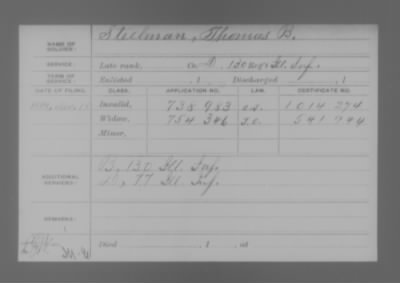 NAME OF SOLDIER: Steelman, Thomas B.
SERVICE: Late rank, Co. D, 130 Ill. Inf.
TERM OF SERVICE: Enlisted , 1 , Discharged , 1
DATE OF FILING. CLASS. APPLICATION NO. LAW. CERTIFICATE NO.
Invalid, 738 983 1014 274
Widow, 754 346 541 944
Minor,
ADDITIONAL SERVICES: B, 130 Ill. Inf.
77 Ill. Inf.
REMARKS:
Died , 1 , at